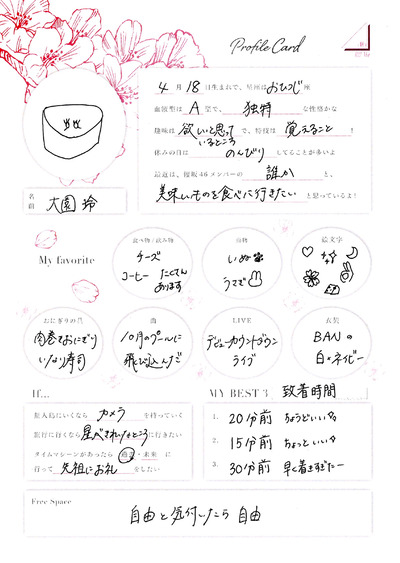 Profile Card
4月18日生まれで、星座はおひつじ座
血液型はA型で、独特な性格かな
趣味は欲しいと思っているところで、特技は覚えること!
休みの日はのんびりしてることが多いよ
最近は、櫻坂46メンバーの誰かと、
美味いものを食べに行きたいと思っているよ!
名前 大園 玲
My favorite
食べ物/飲み物
チーズ
コーヒー たこてん
動物
いぬ
うマで
絵文字
おにぎりの具
肉巻きおにぎり
いなり寿司
曲
10月のプールに
飛び込んだ
LIVE
デビューカウントダウン
ライブ
衣装
BANの
白×ネイビー
If...
無人島にいくなら カメラ を持っていく
旅行に行くなら 星がきれいなところ に行きたい
タイムマシーンがあったら 過去・未来 に
行って 先祖にお礼 をしたい
MY BEST 3 到着時間
1. 20分前 ちょうどいい
2. 15分前 ちょっといい
3. 30分前 早く着きすぎたー
Free Space
自由と気付いたら自由